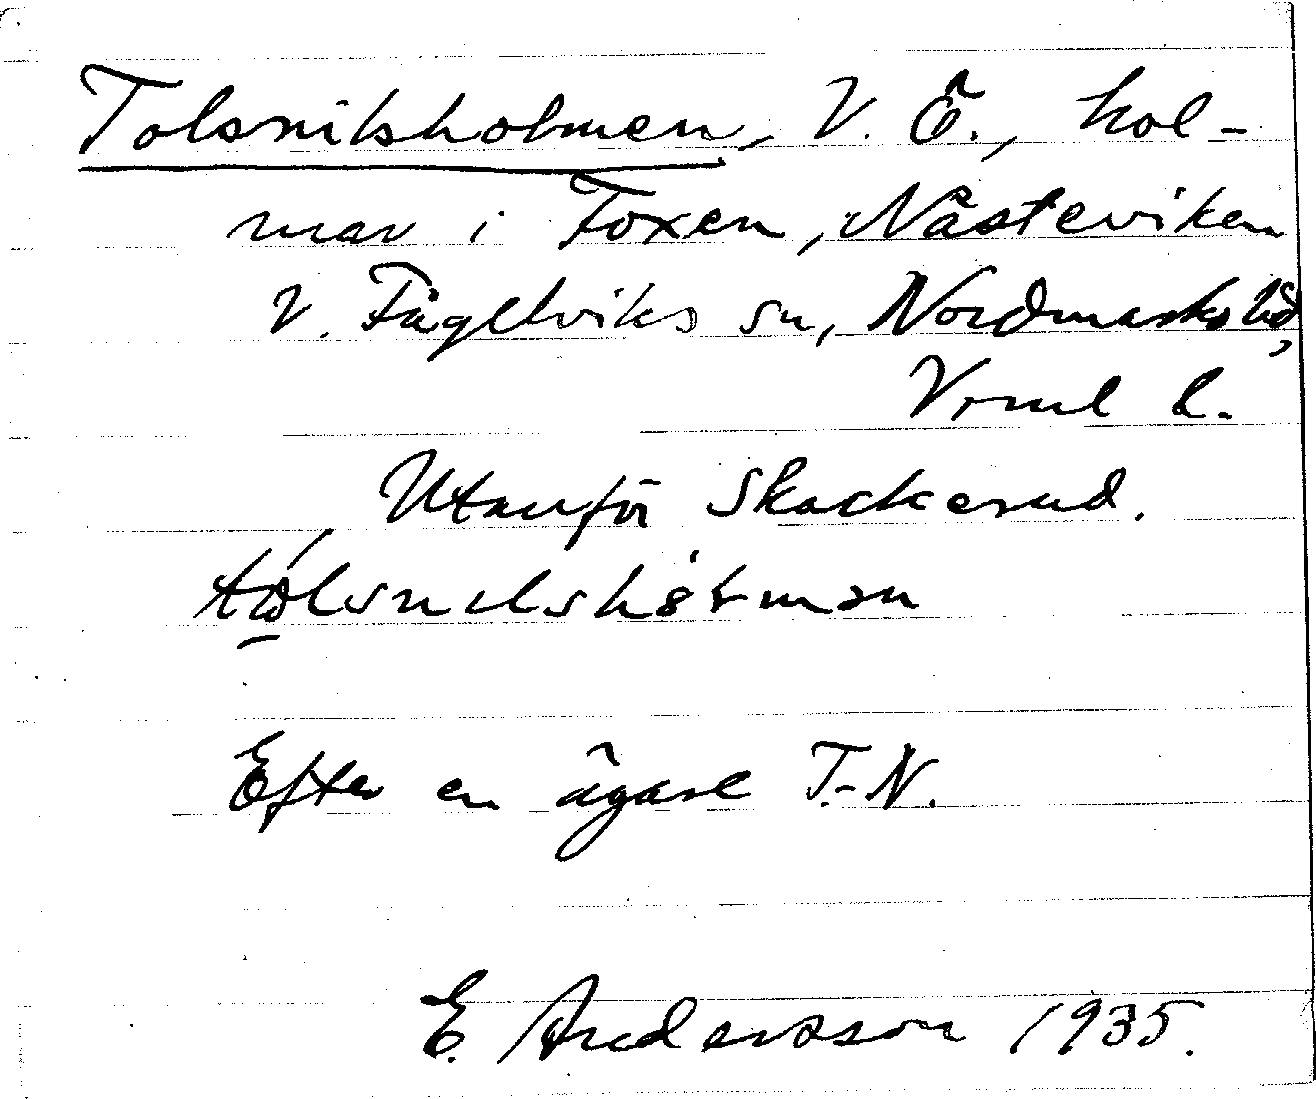 Tolsnilsholmen, V. Ö., hol-
mar i Foxen, Nästeviken
V. Fågelviks sn, Nordmarks hd,
Vrml l.
Utanför Skackerud.
Efter en ägare T.-N.
E. Andersson 1935.